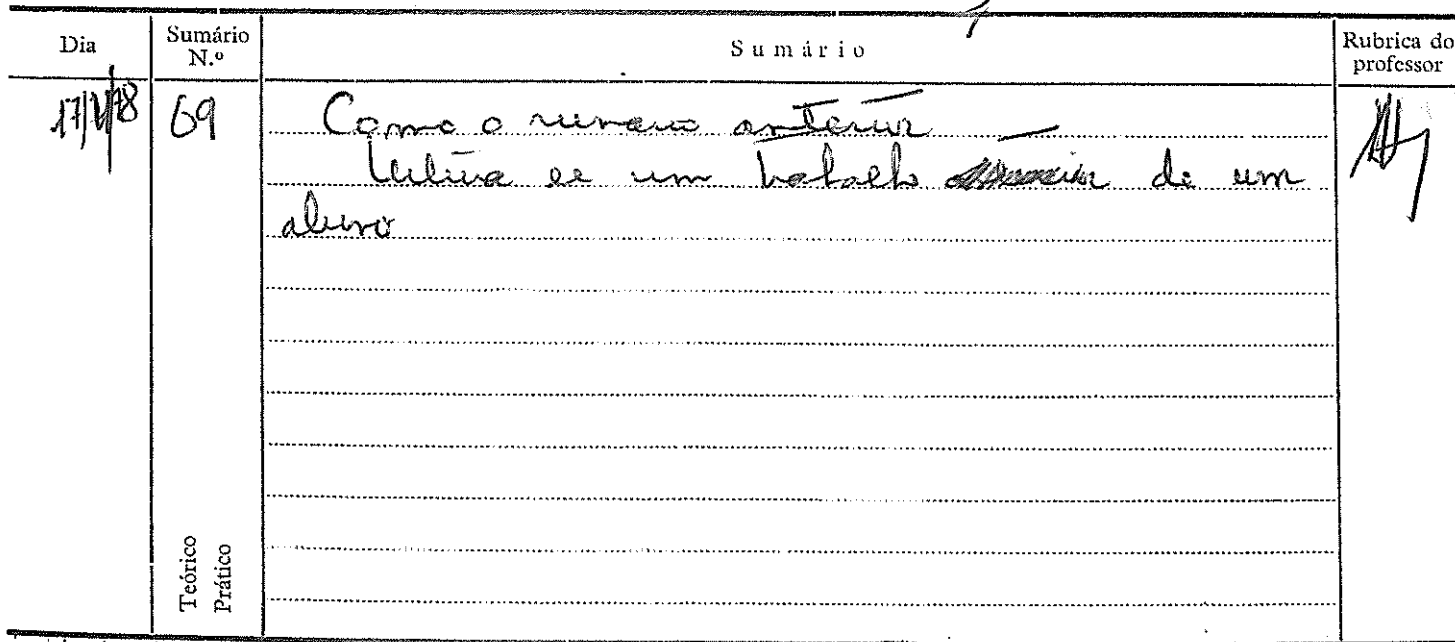 Dia
Sumário N.º
Sumário
Rubrica do professor
69
Como o sumario anterior
um trabalho de um
aluno
Teórico
Prático